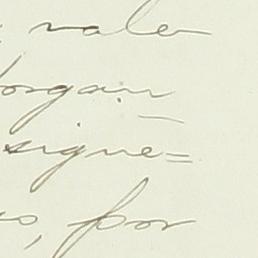 vale
organ
signe=
os, por